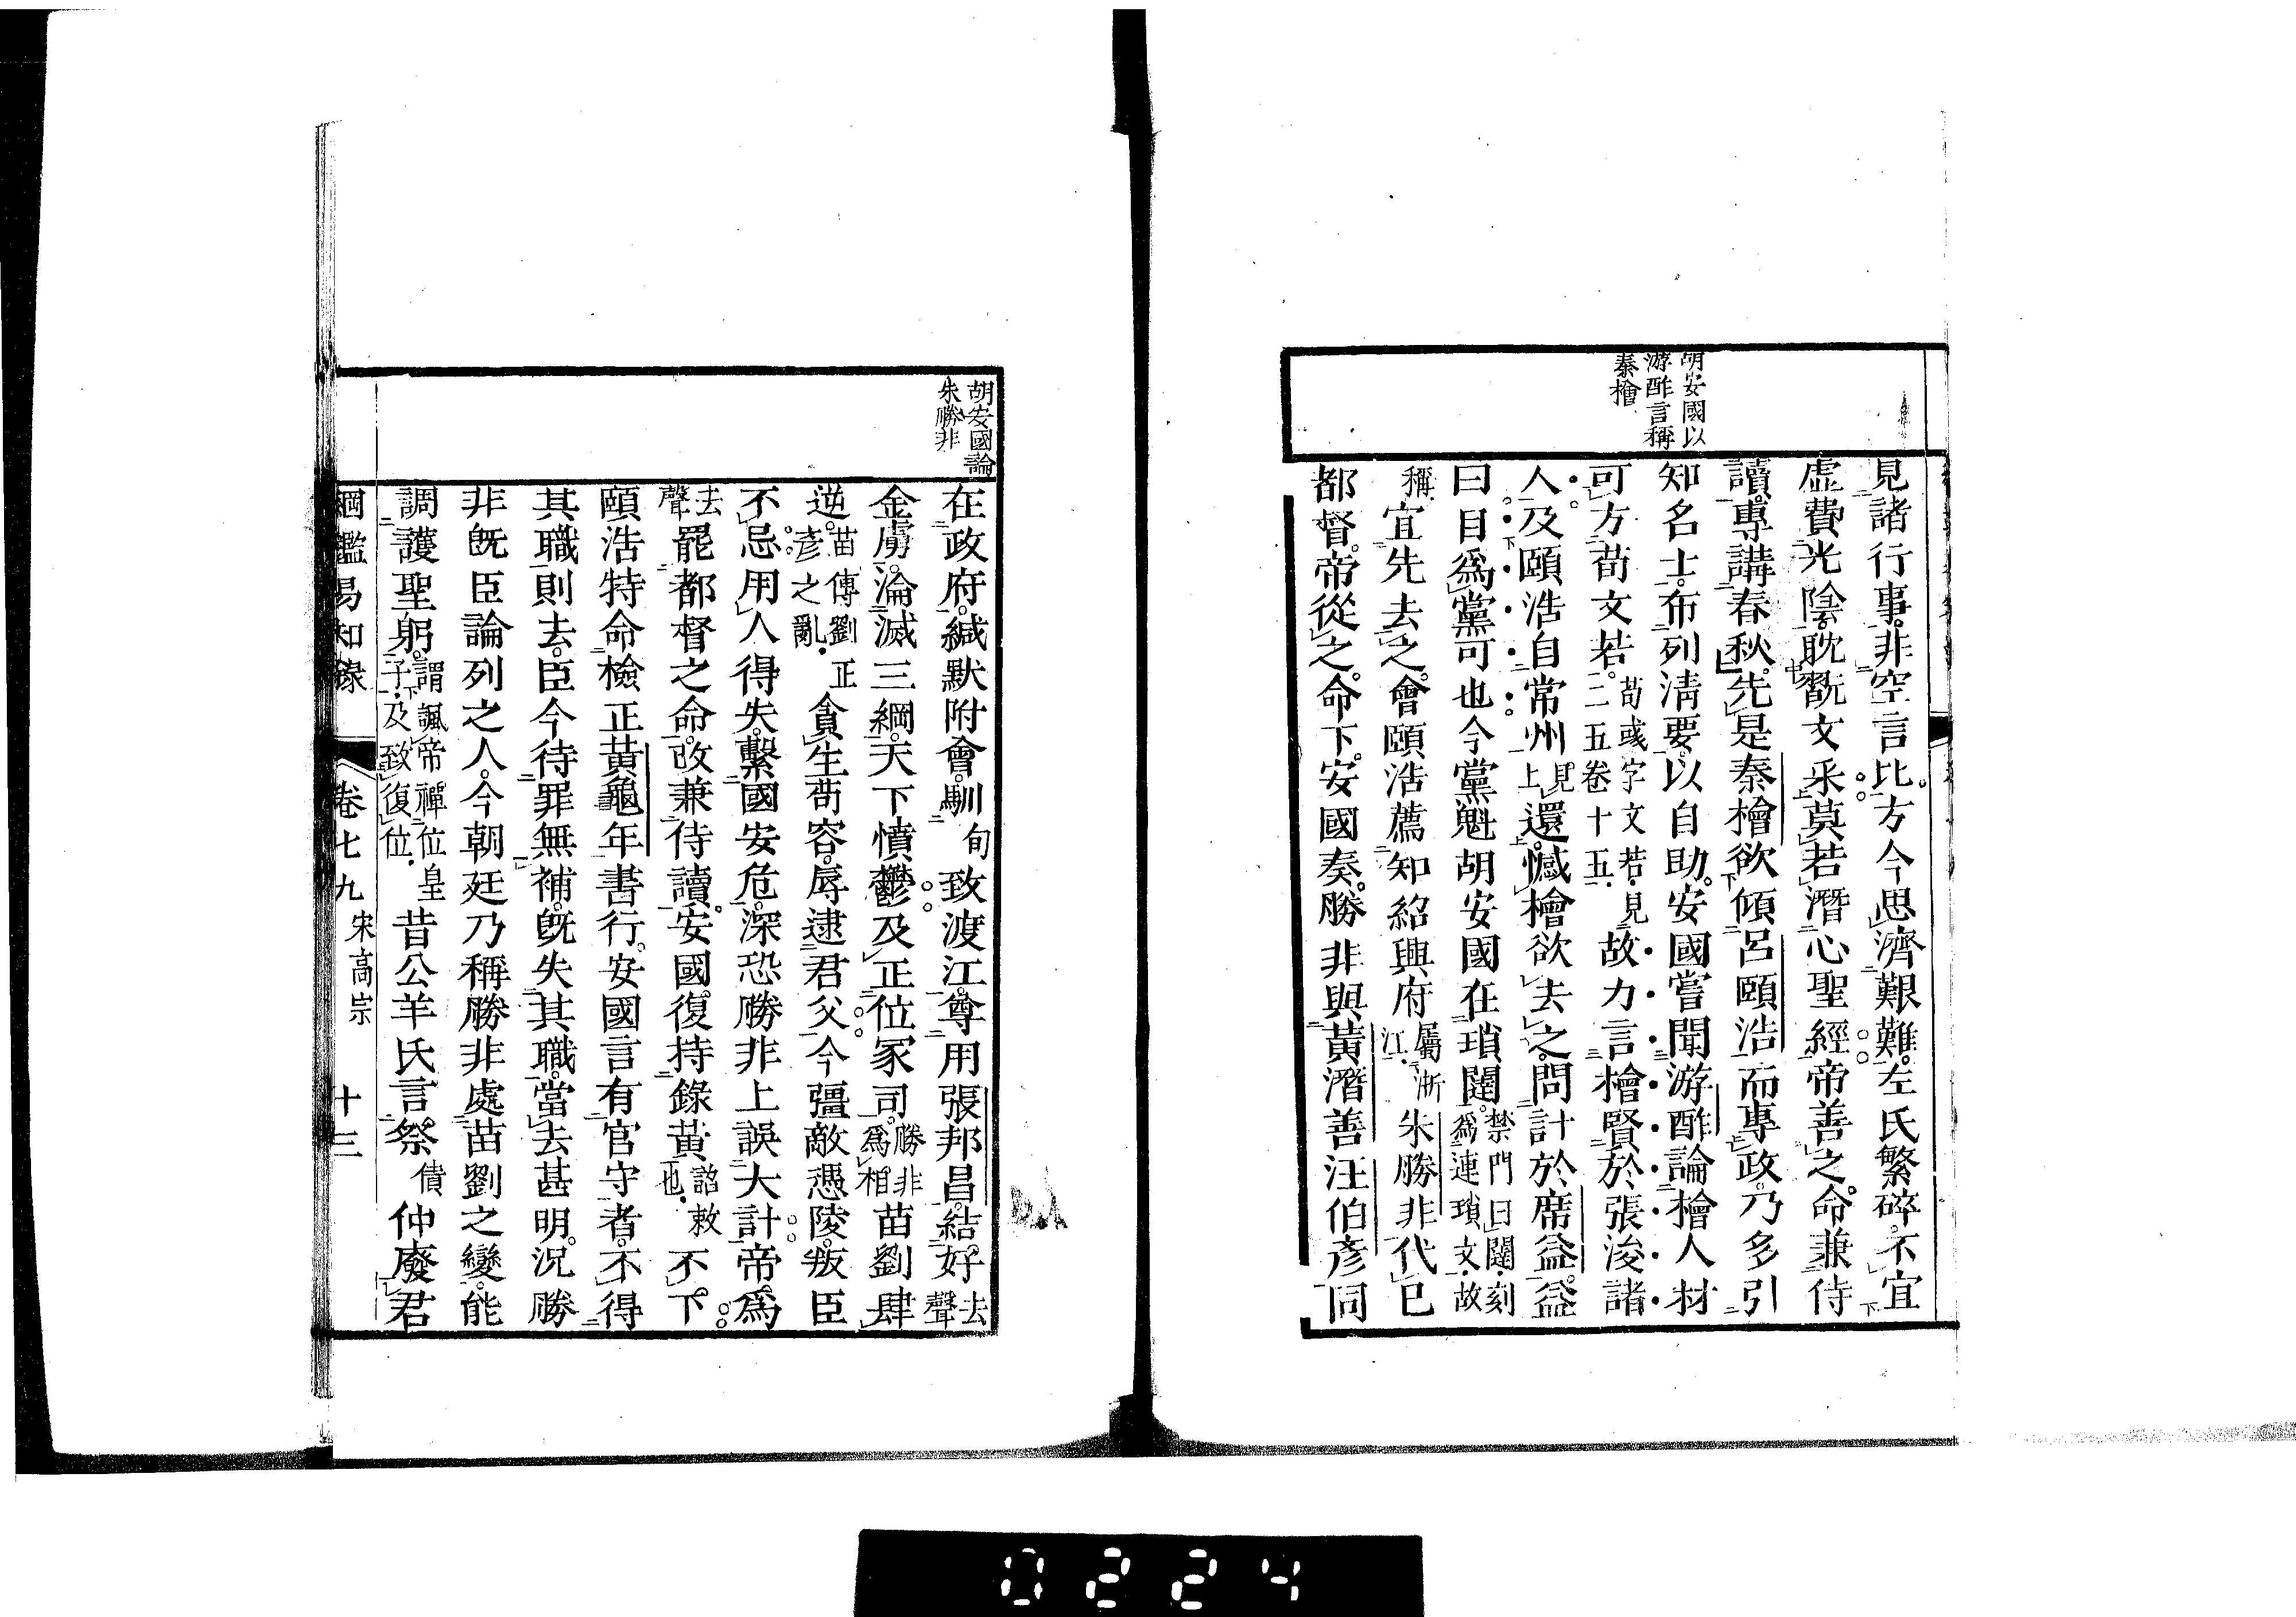 胡安國以
游酢言稱
秦檜
見諸行事。非空言比。方今思濟艱難。左氏繁碎。不宜
虛費光陰。耽翫文采。莫若潛心聖經。帝善之。命兼侍
讀。專講春秋。先是秦檜欲傾呂頤浩而專政。乃多引
知名士。布列淸要。以自助。安國嘗聞游酢論檜人材
可方荀文若。荀彧字文若。見二五卷十五。故力言檜賢於張浚諸
人。及頤浩自常州見上還。憾檜欲去之。問計於席益。益
曰目爲黨可也今黨魁胡安國在瑣闥。禁門曰闥。刻爲連瑣文。故
稱。宜先去之。會頤浩薦知紹興府屬浙江。朱勝非代已
都督。帝從之。命下。安國奏。勝非與黃潛善汪伯彥同
胡安國論
朱勝非
在政府。緘默附會。馴旬致渡江。尊用張邦昌。結好去聲
金虜。淪滅三綱。天下憤鬱。及正位冢司。勝非爲相。苗劉肆
逆。苗傅劉正彥之亂。貪生苟容。辱逮君父。今彊敵憑陵。叛臣
不忌用人得失。繫國安危。深恐勝非上誤大計。帝爲
去聲罷都督之命。改兼侍讀。安國復持錄黃詔敕也。不下。
頤浩特命檢正黃龜年書行。安國言有官守者。不得
其職則去。臣今待罪無補。旣失其職。當去甚明。況勝
非旣臣論列之人。今朝廷乃稱勝非處苗劉之變。能
調護聖躬。謂諷帝禪位皇子。及致復位。昔公羊氏言。祭債仲廢君
綱鑑易知錄 卷七九 宋高宗 十三
0224